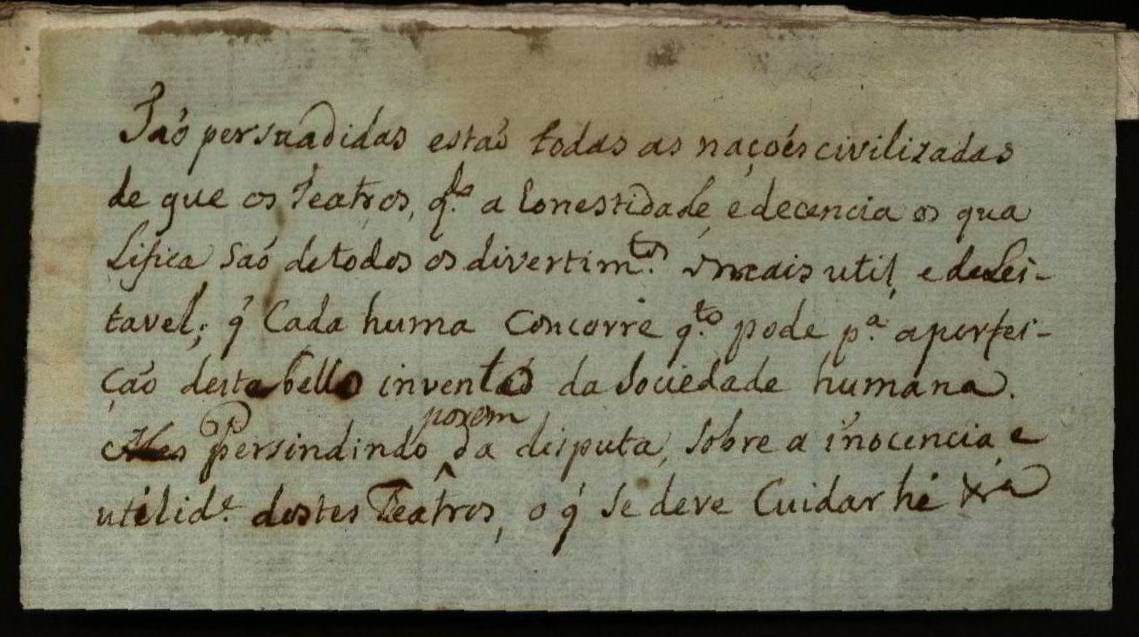 Taõ persuadidas estaõ todas as naçoẽs civilizadas
de que os Teatros, q.do a honestidade, e decencia os qua
lifica saõ de todos os divertim.tos o mais util, e delei-
tavel; q̃ Cada huma Concorre q.to pode p.a a perfei-
çaõ desta bella invençaõ da Sociedade humana.
porem
Persindindo da disputa, sobre a inocencia, e
utilid.e destes Teatros, o q̃ Se deve Cuidar hé